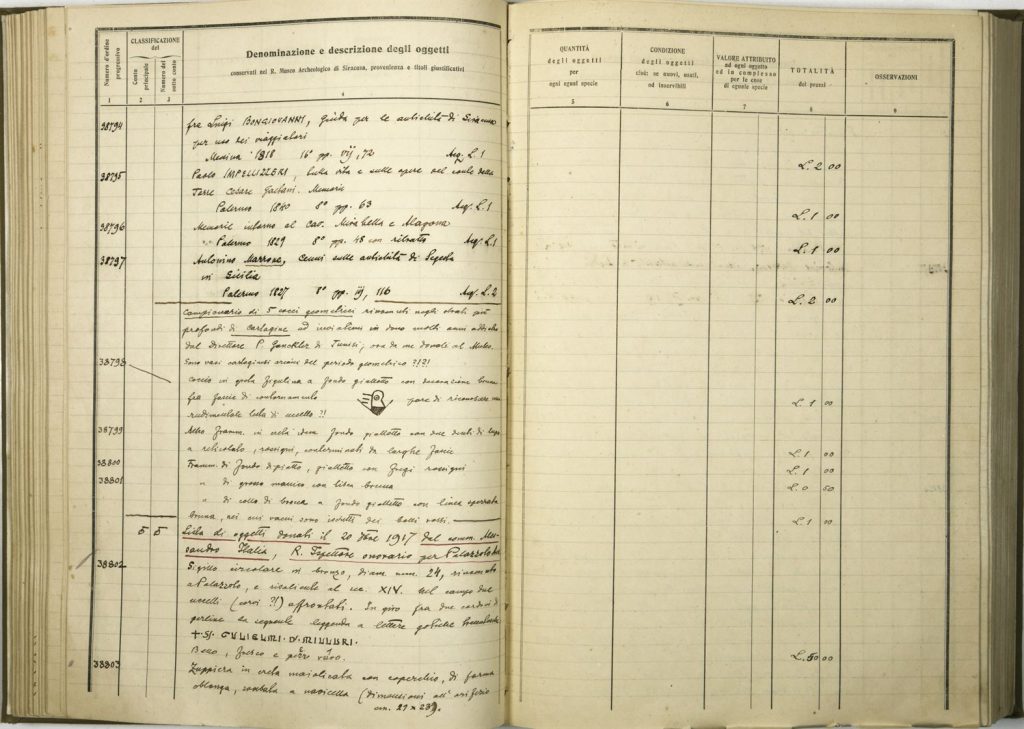 Numero d'ordine progressivo
CLASSIFICAZIONE del
Conto principale
Numero del sotto conto
Denominazione e descrizione degli oggetti
conservati nel R. Museo Archeologico di Siracusa, provenienza e titoli giustificativi
1 2 3 4
38794 fra Luigi BONGIOVANNI, Guida per le antichità di Siracusa
per uso dei viaggiatori
Messina 1818 16° pp. vij, 72 Acq. L. 1
38795 Paolo IMPELLIZZERI, sulla vita e sulle opere del conte della
Torre Cesare Gaetani. Memorie
Palermo 1880 8° pp. 63 Acq. L. 1
38796 Memorie intorno al Cav. Mirabella e Alagona
Palermo 1829 8° pp. 48 con ritratto Acq. L. 1
38797 Antonino Marrone, Cenni sulle antichità di Segesta
in Sicilia
Palermo 1827 8° pp. iij, 116 Acq. L. 2
Campionario di 5 cocci geometrici rinvenuti negli strati più
profondi di Cartagine ed inviatemi in dono molti anni addietro
dal Direttore P. Gauckler di Tunisi; ora da me donati al Museo.
Sono vasi cartaginesi arcaici del periodo geometrico ?!?!
38798 Coccio in creta figulina a fondo gialletto con decorazione bruna
fra fascie di contornamento pare di riconoscere una
rudimentale testa di uccello ?!
38799 Altro framm. in creta idem fondo gialletto con due denti di lupo
a reticolato, rossigni, conterminati da larghe fascie
38800 Framm. di fondo di piatto, gialletto con fregi rossigni
38801 " di grosso manico con listra bruna
" di collo di brocca a fondo gialletto con linea spezzata
bruna, nei cui vacui sono iscritti dei bolli rossi.
5 5 Lista di oggetti donati il 20 1917 dal comm. Ales-
sandro Italia, R. Ispettore onorario per Palazzolo
38802 Sigillo circolare in bronzo, diam. mm. 24, rinvenuto
a Palazzolo, e risalente al sec. XIV. Nel campo due
uccelli (corvi ?!) affrontati. In giro fra due cordoni di
perline la seguente leggenda a lettere gotiche
+ S. GULIELMI D.
Bello, fresco e
38803 Zuppiera in creta maiolicata con coperchio, di forma
oblonga, centrata a navicella (dimensioni all'orifizio
cm. 21 x 28).
QUANTITÀ degli oggetti per ogni specie
CONDIZIONE degli oggetti cioè: se nuovi, usati, od inservibili
VALORE ATTRIBUITO ad ogni oggetto ed in complesso per le cose di eguale specie
TOTALITÀ dei prezzi
OSSERVAZIONI
5 6 7 8 9
L. 2 00
L. 1 00
L. 1 00
L. 2 00
L. 1 00
L. 1 00
L. 1 00
L. 0 50
L. 1 00
L. 50 00